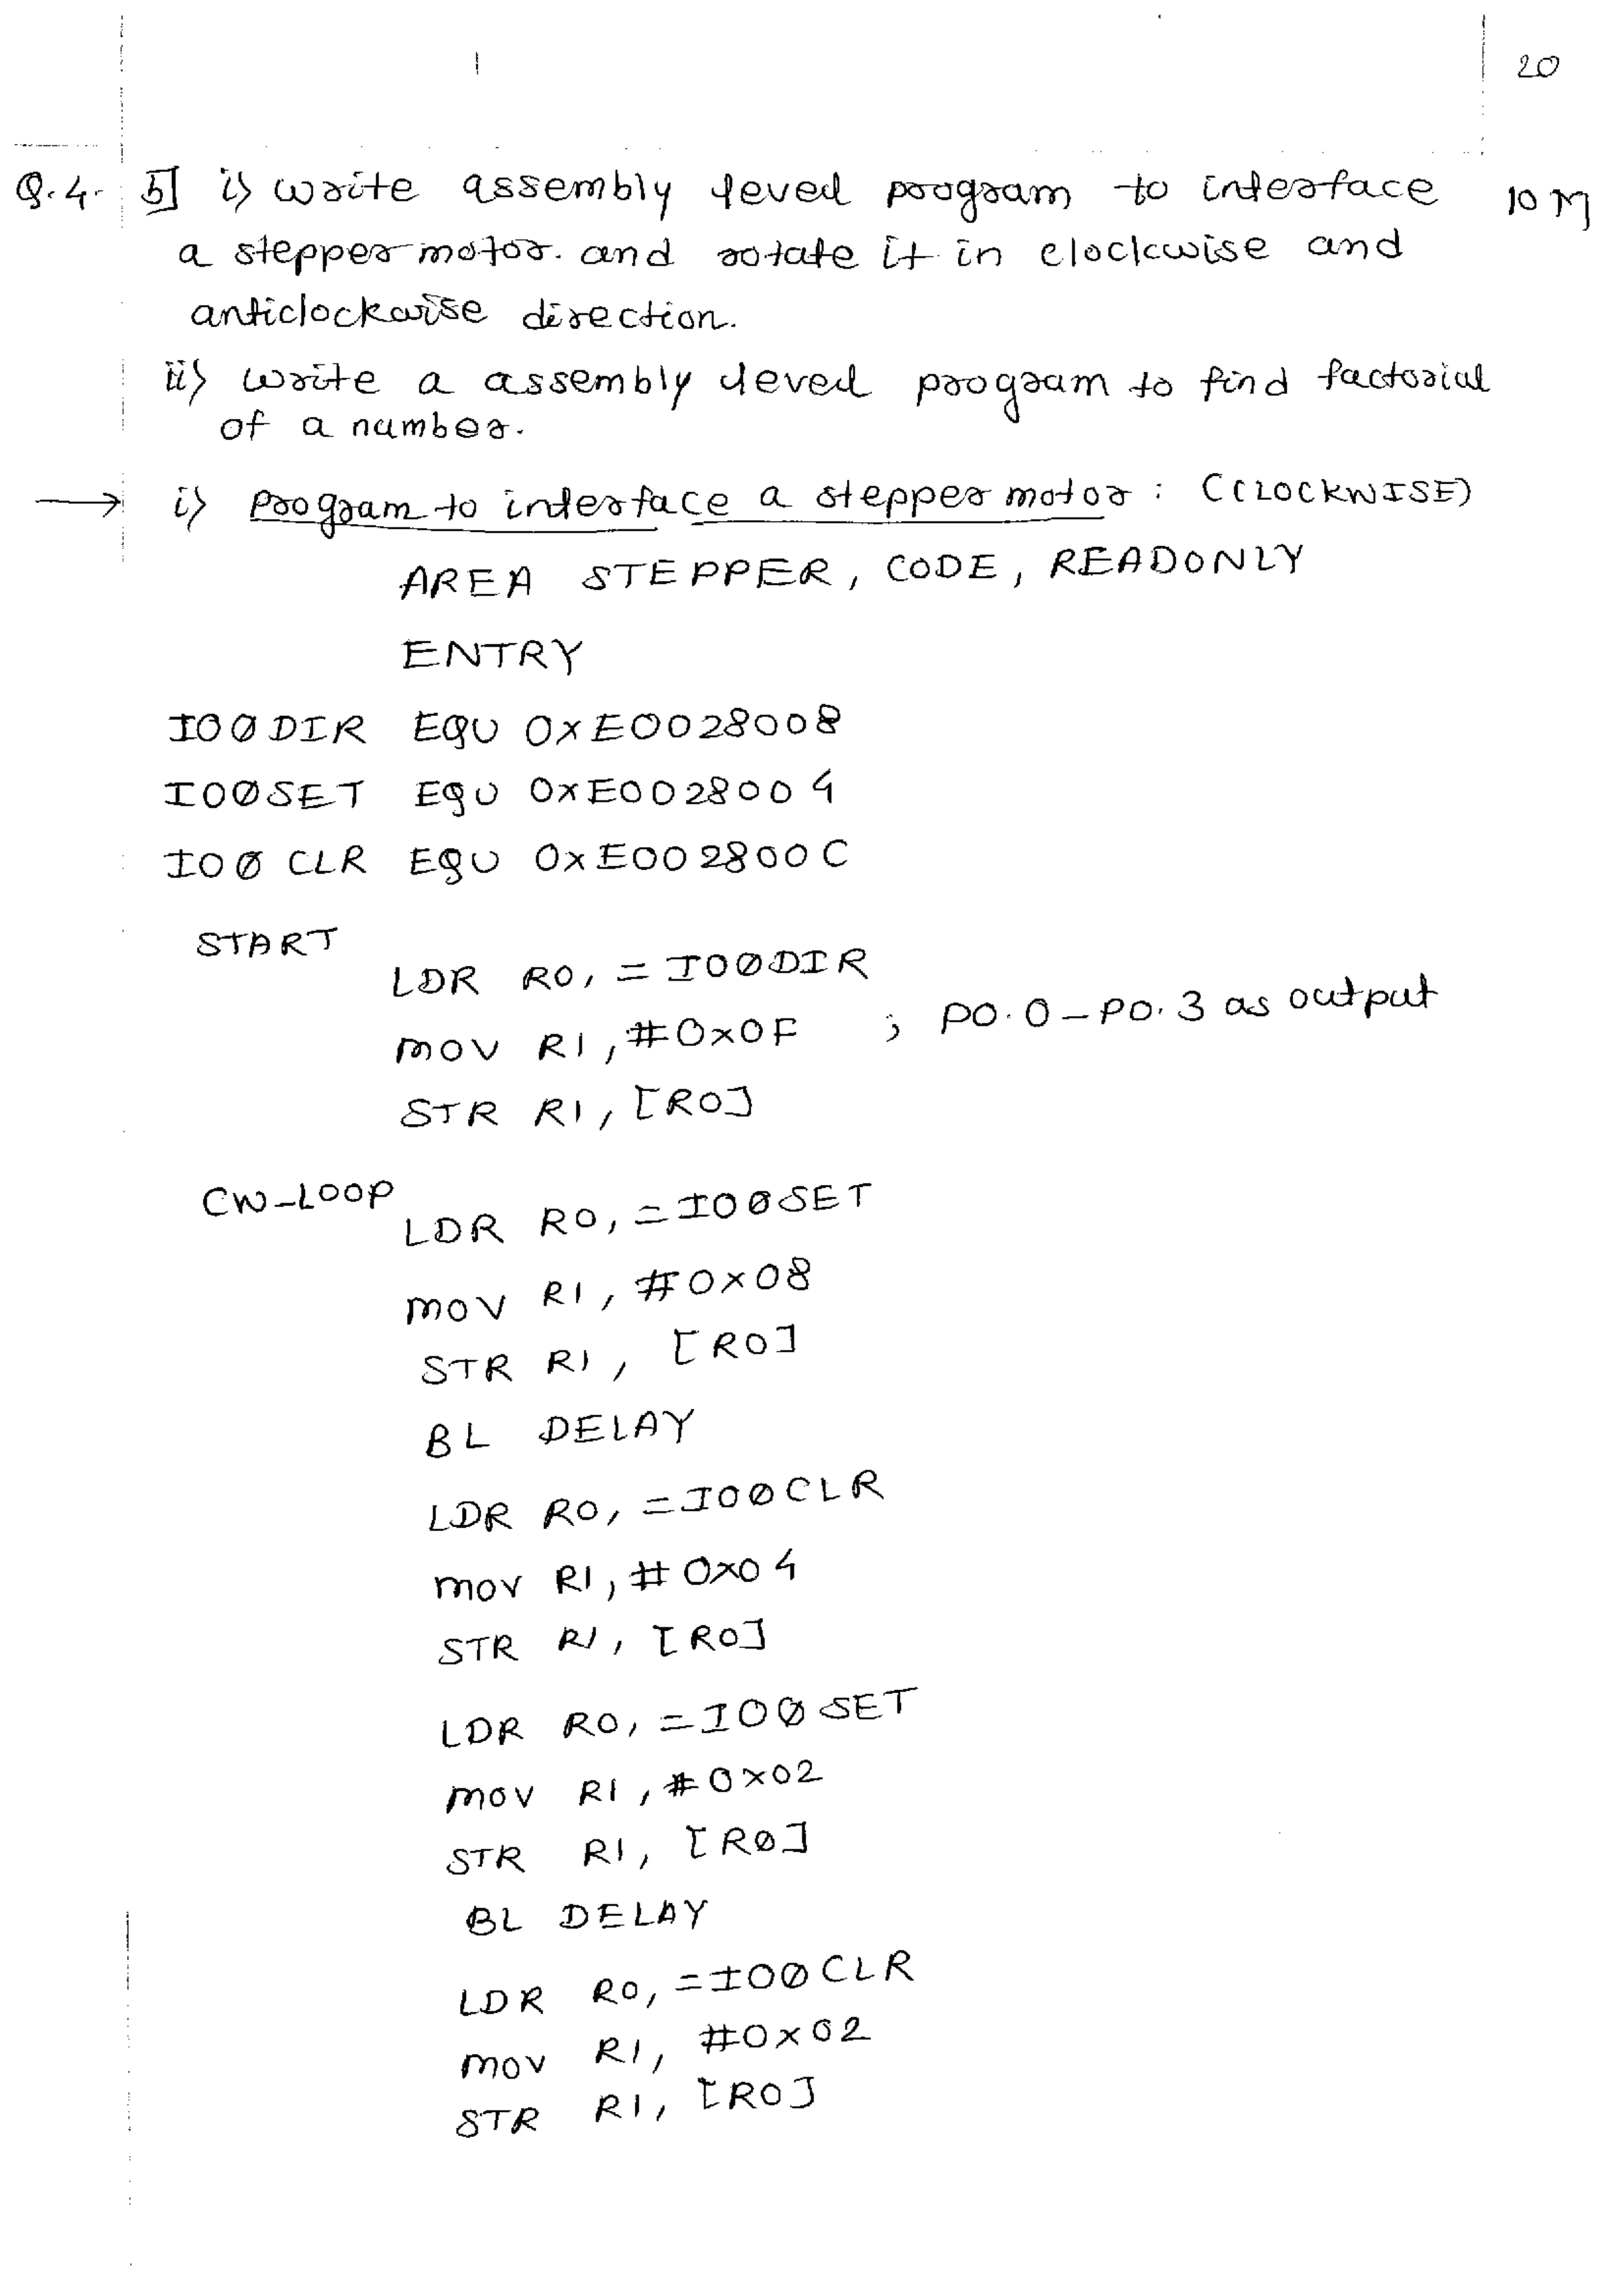 20
Q.4. b] i) write assembly level program to interface 10 M
a stepper motor. and rotate it in clockwise and
anticlockwise direction.
ii) write a assembly level program to find factorial
of a number.
→ i) program to interface a stepper motor : (CLOCKWISE)
AREA STEPPER, CODE, READONLY
ENTRY
IO0DIR EQU 0xE0028008
IO0SET EQU 0xE0028004
IO0CLR EQU 0xE002800C
START
LDR R0, =IO0DIR
MOV R1, #0x0F ; P0.0-P0.3 as output
STR R1, [R0]
CW-LOOP
LDR R0, =IO0SET
MOV R1, #0x08
STR R1, [R0]
BL DELAY
LDR R0, =IO0CLR
MOV R1, #0x04
STR R1, [R0]
LDR R0, =IO0SET
MOV R1, #0x02
STR R1, [R0]
BL DELAY
LDR R0, =IO0CLR
MOV R1, #0x02
STR R1, [R0]